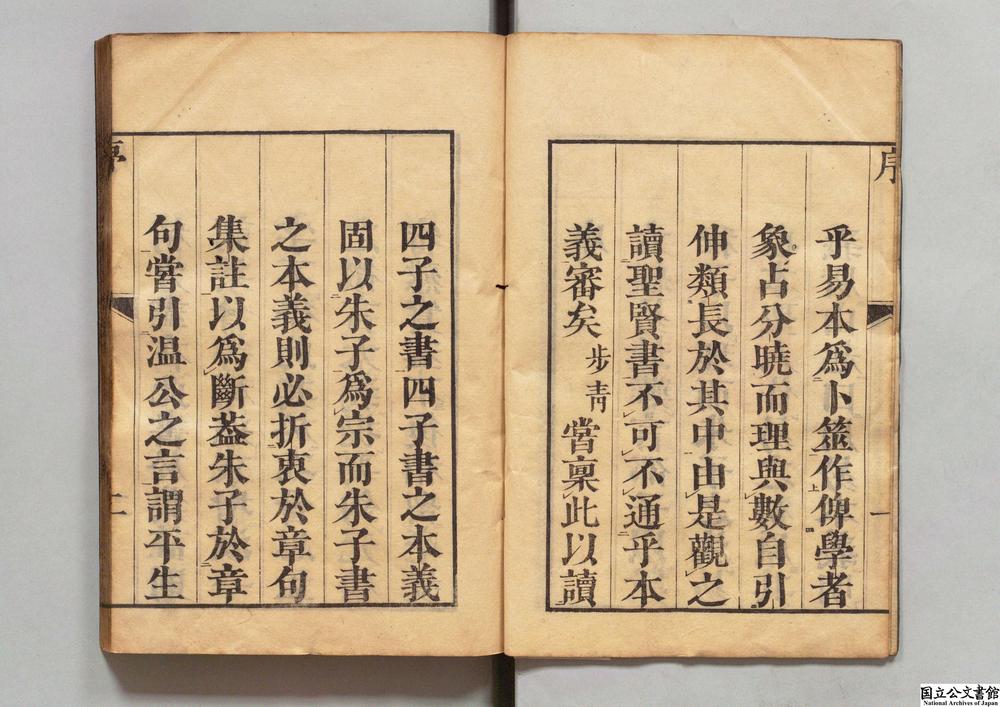 序
一
乎易本爲卜筮作俾學者
象占分曉而理與數自引
伸類長於其中由是觀之
讀聖賢書不可不通乎本
義審矣步青嘗稟此以讀
四子之書四子書之本義
固以朱子爲宗而朱子書
之本義則必折衷於章句
集註以爲斷葢朱子於章
句嘗引温公之言謂平生
序
二
国立公文書館
National Archives of Japan